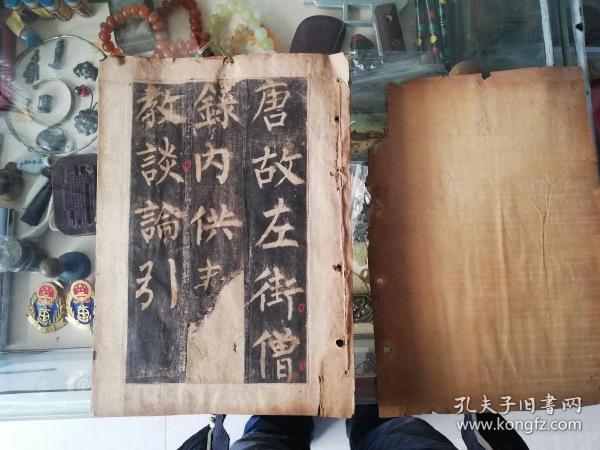 唐故左街僧
錄內供
教談論引
孔夫子旧書网
www.kongfz.com